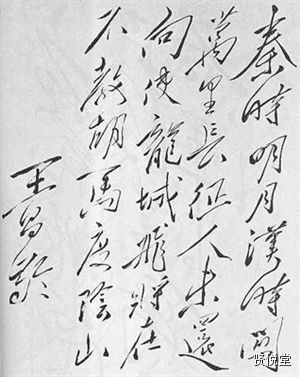 秦時明月漢時關
萬里長征人未還
向使龍城飛將在
不教胡馬度陰山
王昌齡
贤悦堂